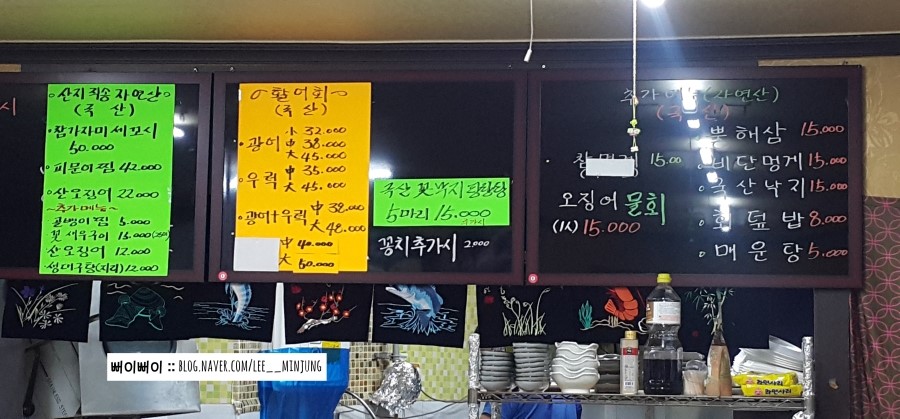 시
◦산지직송 자연산◦
(국 산)
◦참가자미 세꼬시
50.000
◦피문어찜 42.000
◦산오징어 22000
~추가메뉴~
골뱅이찜 5.000
꽃새우구이 15.000
산오징어 12.000
성대구탕(지리) 12.000
활어회
(국 산)
小 32.000
◦광어 中 38.000
大 45.000
◦우럭 中 35.000
大 45.000
◦광어+우럭 中 38.000
大 48.000
中 40.000
大 50.000
국산 꽃낙지 탕탕탕
5마리 15.000
추가시
꽁치추가시 2000
추가메뉴(자연산)
(국 산)
◦뿔해삼 15.000
참멍게 15.00
◦비단멍게 15.000
◦국산낙지 15.000
오징어 물회
(1人) 15.000
◦회 덮 밥 8.000
◦매 운 탕 5.000
빼이빼이 :: BLOG.NAVER.COM/LEE__MINJUNG